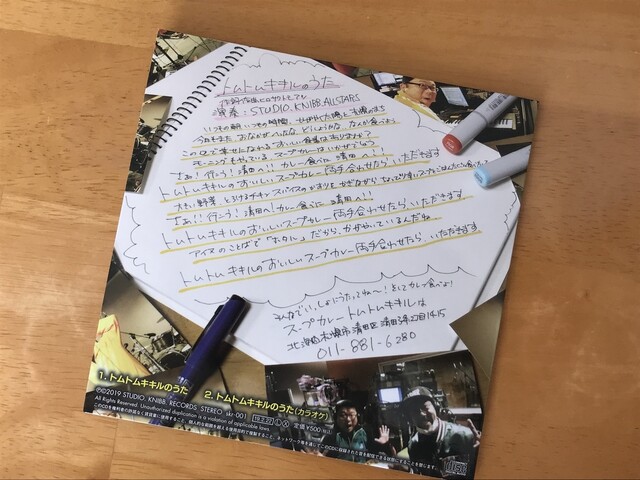 トムトムキキルのうた
作詞作曲ヒロサワトモアル
演奏：STUDIO.KNIBB.ALLSTARS
いつもの朝 いつもの時間
今日もまた おなかがへったな どうしようかな なんか食べよう
この口で幸せになれる おいしい食事はありますか?
モーニングもやっている スープカレーはいかがでしょう
さぁ!行こう!清田へ!カレー食べに 清田へ!!
トムトムキキルのおいしいスープカレー 両手合わせたら いただきます
大きい野菜 とろけるチキン スパイスのかおりをかぎながら
さぁ!!行こう!清田へ!カレー食べに 清田へ!!
トムトムキキルのおいしいスープカレー 両手合わせたら いただきます
アイヌのことばで「ホタル」だから、かがやいているんだね
トムトムキキルのおいしいスープカレー 両手合わせたら いただきます
みんなでいっしょにうたってね〜! そしてカレー食べよ!
スープカレートムトムキキルは
北海道札幌市清田区清田2条2丁目14-15
011-881-6280
1. トムトムキキルのうた 2. トムトムキキルのうた(カラオケ)
Ⓟ©2019 STUDIO. KNIBB. RECORDS, STEREO skr-001
定価 ¥500
All Rights Reserved. Unauthorized duplication is a violation of applicable laws.